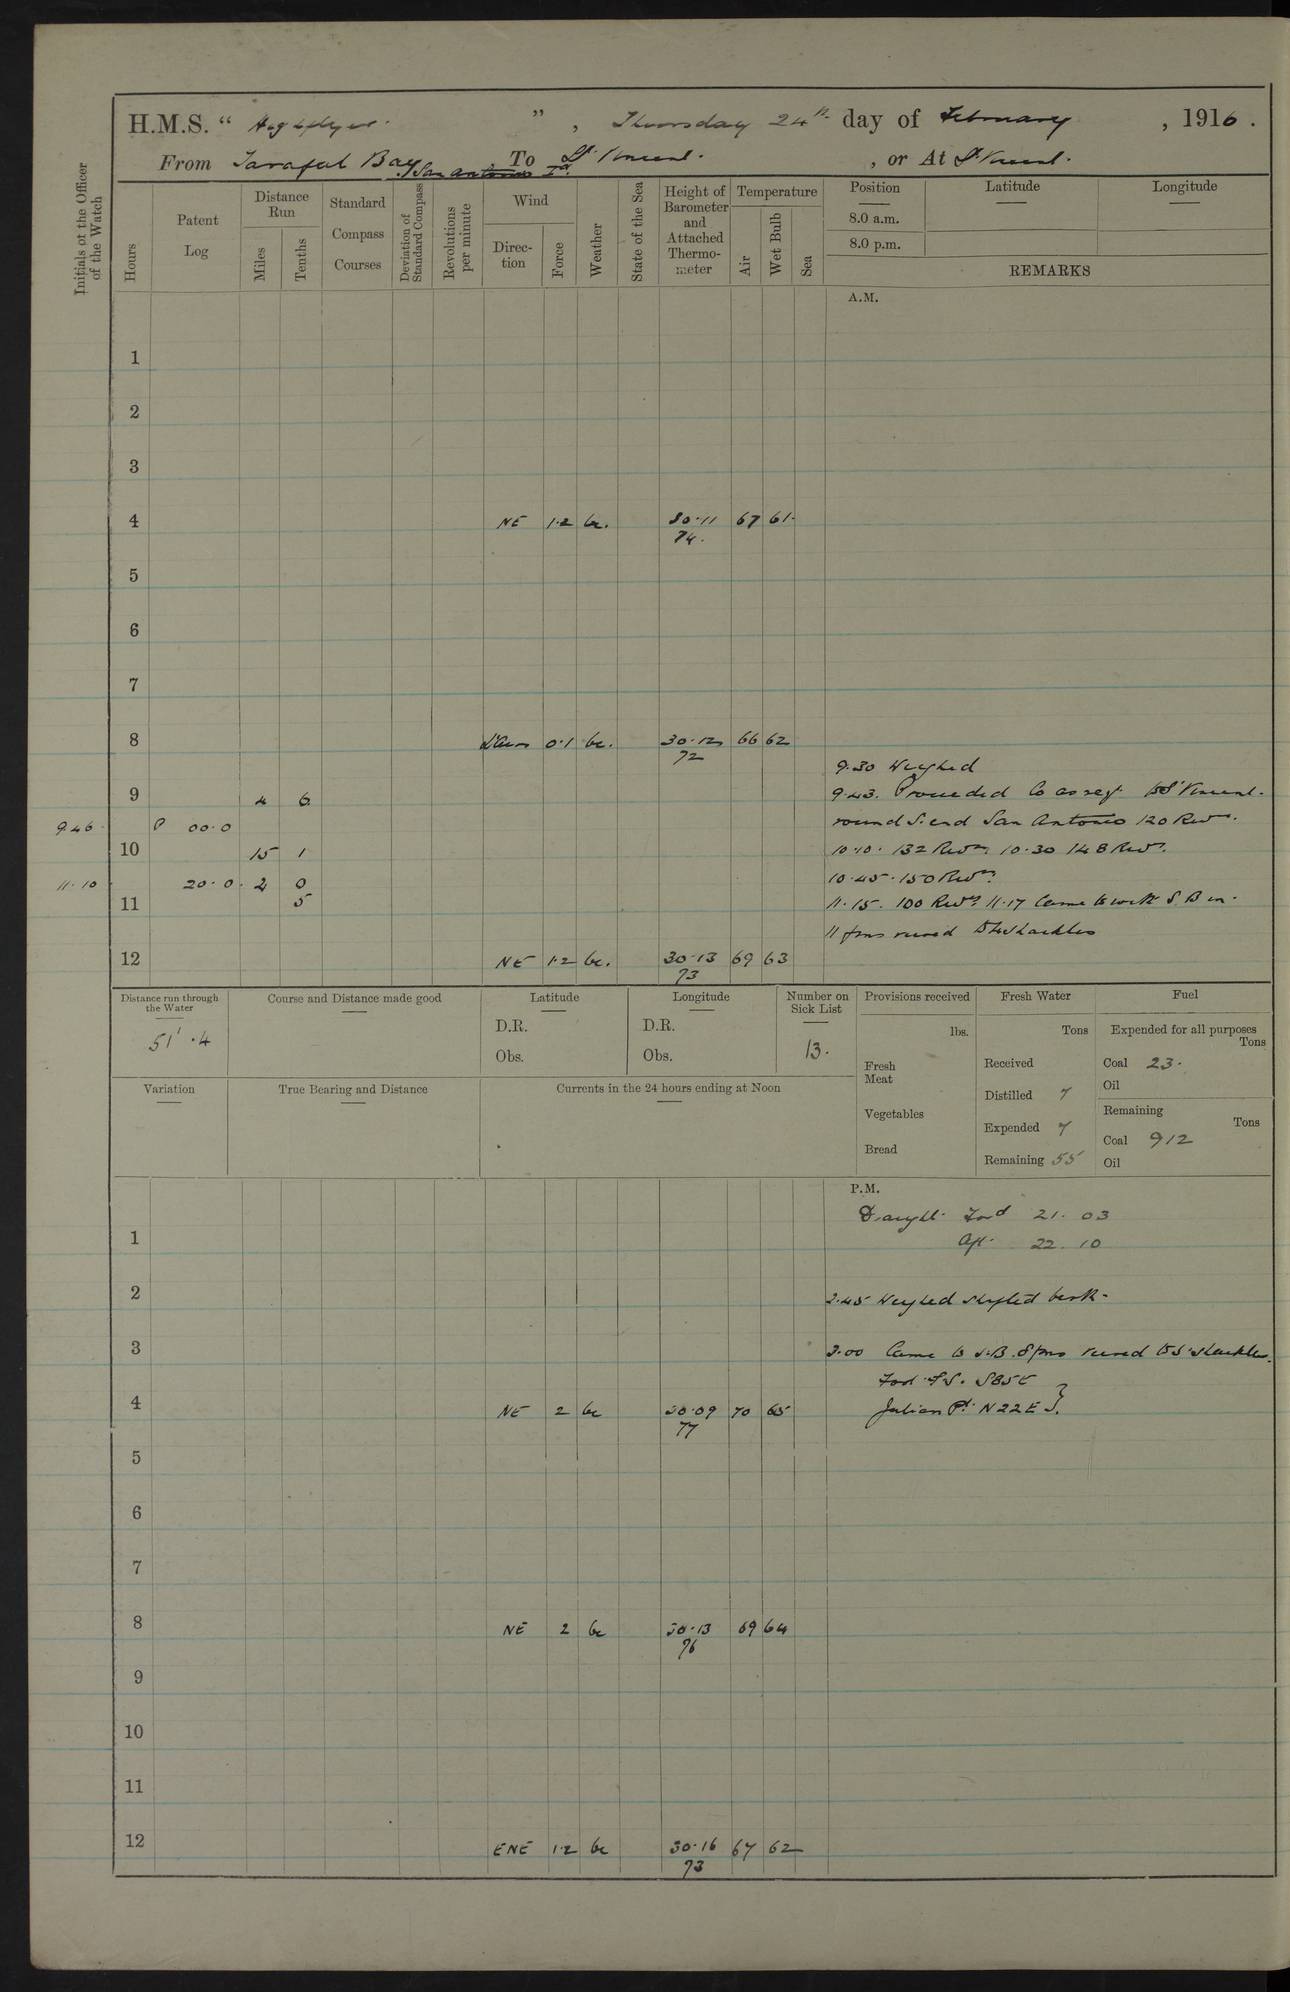 H.M.S. “ Highflyer. ” , Thursday 24th day of February , 1916 .
From Tarafal Bay San Antonio Id. , To St Vincent. , or At St Vincent.
Initials of the Officer of the Watch
Hours
Patent Log
Distance Run
Miles
Tenths
Standard Compass Courses
Deviation of Standard Compass
Revolutions per minute
Wind
Direction
Force
Weather
State of the Sea
Height of Barometer and Attached Thermometer
Temperature
Air
Wet Bulb
Sea
Position
8.0 a.m.
8.0 p.m.
Latitude
Longitude
REMARKS
A.M.
1
2
3
4 NE 1·2 bc. 30·11 67 61·
74.
5
6
7
8 0·1 bc. 30·12 66 62
72
9.30 Weighed
9 4 6 9.43. Proceeded Co as reqt to St Vincent.
9 46 P 00·0 round S. end San Antonio 120 Revs.
10 15 1 10·10. 132 Revs. 10·30 148 Revs.
11.10 20·0 2 0 10·45·150 Revs
11 5 11·15. 100 Revs. 11·17 Came to with S. B in.
11 fms veered to 4 shackles
12 NE 1·2 bc. 30·13 69 63
73
Distance run through the Water
51' ·4
Course and Distance made good
Latitude
D.R.
Obs.
Longitude
D.R.
Obs.
Number on Sick List
13.
Provisions received
lbs.
Fresh Meat
Vegetables
Bread
Fresh Water
Tons
Received
Distilled 7
Expended 7
Remaining 55
Fuel
Expended for all purposes
Tons
Coal 23.
Oil
Remaining
Tons
Coal 912
Oil
Variation
True Bearing and Distance
Currents in the 24 hours ending at Noon
P.M.
Draught. Ford 21. 03
1 Aft. 22. 10
2 2.45 Weighed shifted berth.
3 3.00 Came to S.B. 8 fms veered to 5 shackles.
S85E
4 NE 2 bc 30·09 70 65 Julian Pt. N22E }
77
5
6
7
8 NE 2 bc 30·13 69 64
76
9
10
11
12 ENE 1·2 bc 30·16 67 62
73